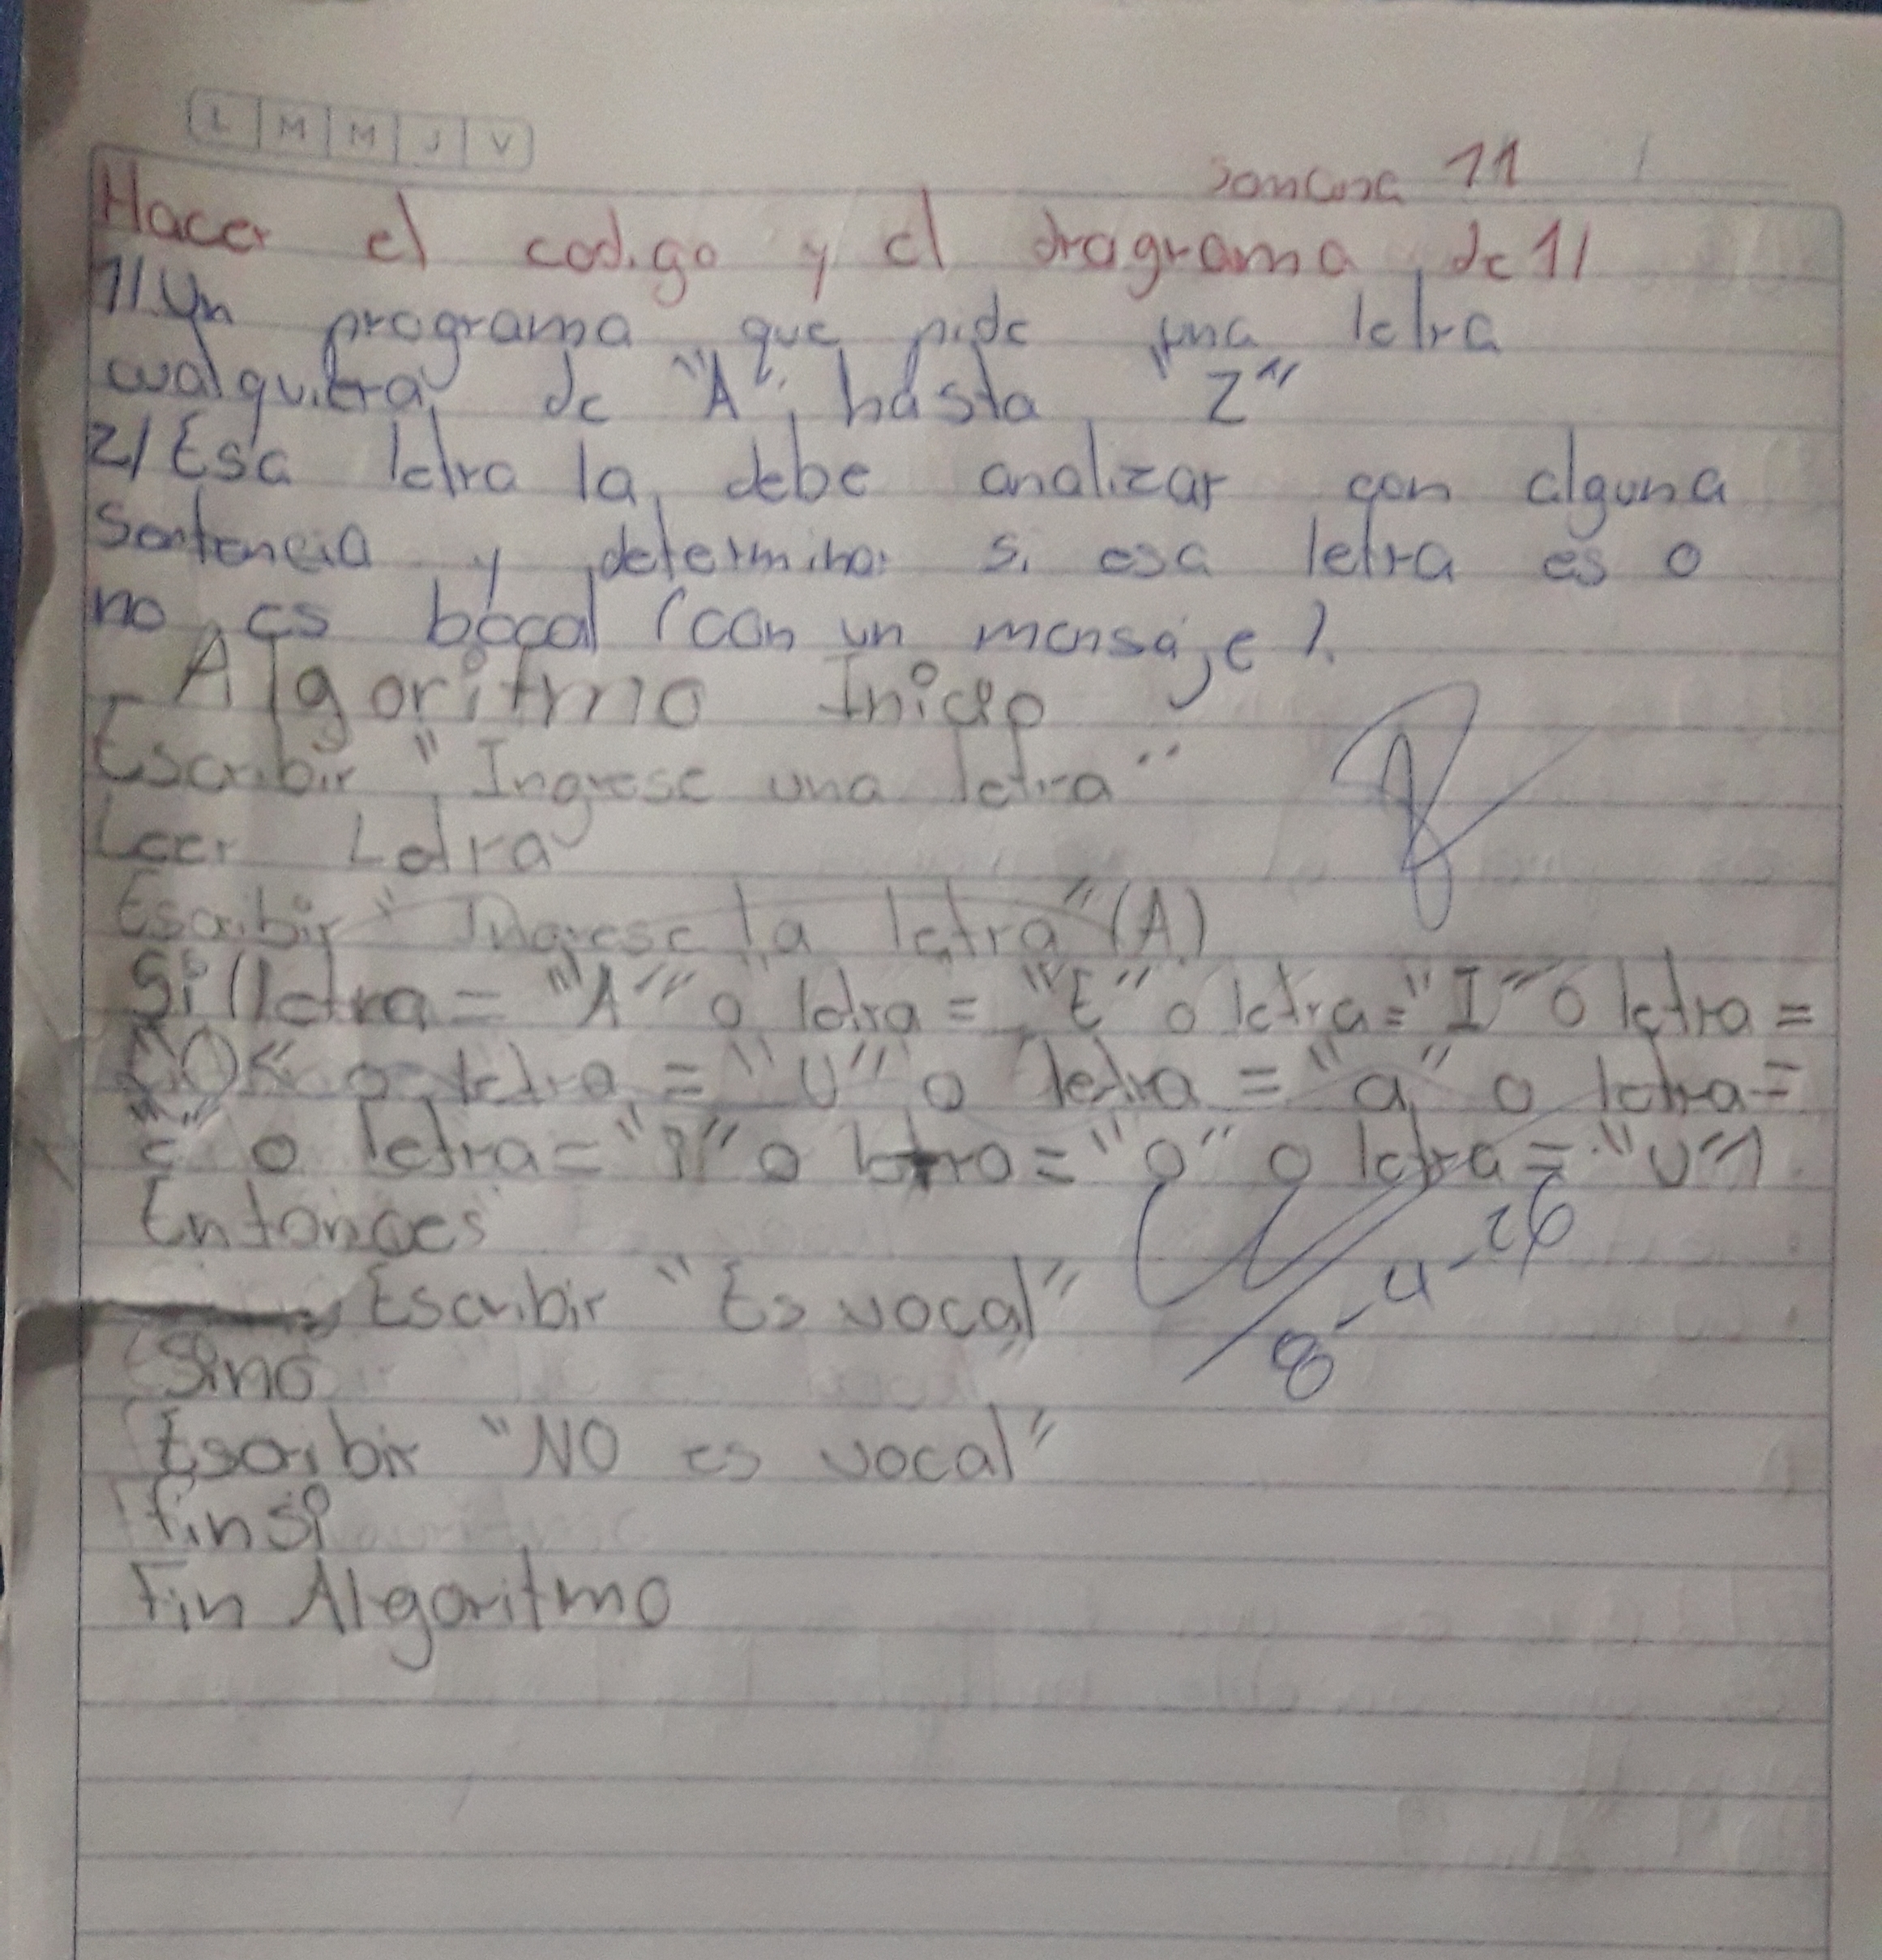 L M M J V
semana 11
Hacer el codigo y el diagrama de 1/
1/ Un programa que pide una letra
cualquiera de "A" hasta "Z"
2/ Esa letra la debe analizar con alguna
Sentencia y determinar si esa letra es o
no es bocal (con un mensaje).
Algoritmo Inicio
Escribir "Ingrese una letra"
Leer Letra
Escribir "Ingrese la letra" (A)
Si (letra = "A" o letra = "E" o letra = "I" o letra =
"O" o letra = "U" o letra = "a" o letra =
"e" o letra = "i" o letra = "o" o letra = "u")
Entonces
Escribir "Es vocal"
8-4-26
Sino
Escribir "NO es vocal"
finsi
Fin Algoritmo